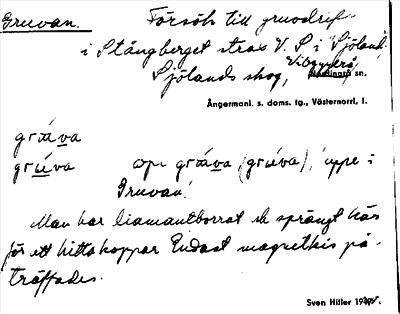 Gruvan. Försök till gruvdrift
i Stångberget strax V. S i "Sjöland".
Sjölands skog, Vibyggerå, Nordingrå sn.
Ångermanl. s. doms. tg., Västernorrl. l.
grúva
grúva up grúva, (grúva), uppe i
Gruvan.
Man har diamantborrat ok sprängt här
för att hitta koppar Endast magnetkis på-
träffades.
Sven Hiller